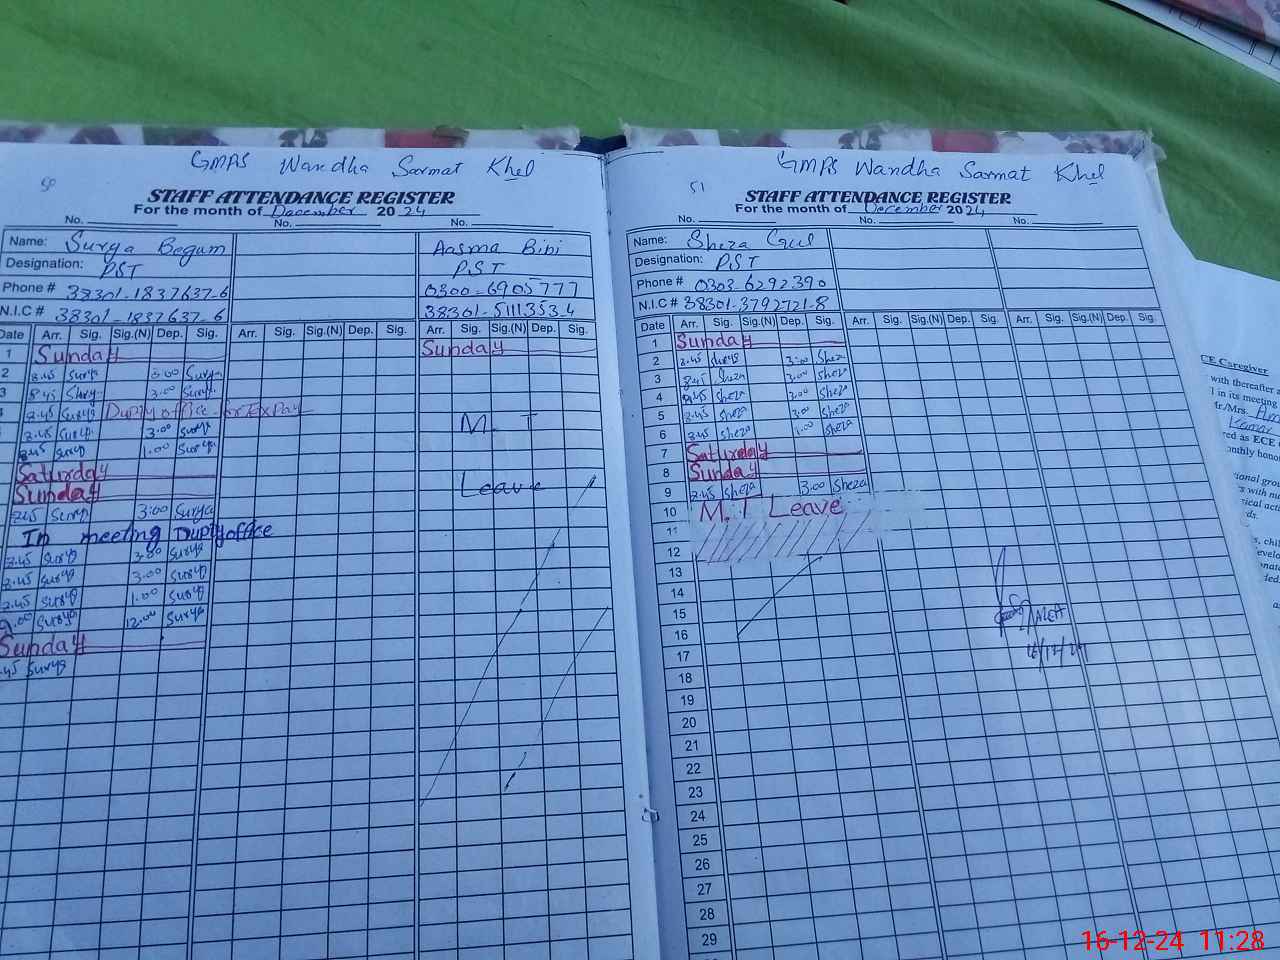 GMPS Wandha Sarmat Khel
50
STAFF ATTENDANCE REGISTER
For the month of December 2024
No. No. No.
Name: Surya Begum Aasma Bibi
Designation: PST PST
Phone # 38301-1837637-6 0300-6905777
N.I.C # 38301-1837637-6 38301-5111353-4
Date Arr. Sig. Sig.(N) Dep. Sig. Arr. Sig. Sig.(N) Dep. Sig. Arr. Sig. Sig.(N) Dep. Sig.
1 Sunday Sunday
2 8.45 Surya 3:00 Surya
3 8.45 Surya 3.00 Surya
8.45 Surya Dupty office for Tex Pay
8.45 Surya 3.00 Surya M.T
8.45 Surya 1.00 Surya
Saturday
Sunday Leave
8.45 Surya 3:00 Surya
In meeting Duptyoffice
8.45 Surya 3.00 Surya
8.45 Surya 3.00 Surya
8.45 Surya 1.00 Surya
9.00 Surya 12.00 Surya
Sunday
8.45 Surya
GMPS Wandha Sarmat Khel
51
STAFF ATTENDANCE REGISTER
For the month of December 2024
No. No. No.
Name: Sheza Gul
Designation: PST
Phone # 0303-6292390
N.I.C # 38301-3792721-8
Date Arr. Sig. Sig.(N) Dep. Sig. Arr. Sig. Sig.(N) Dep. Sig. Arr. Sig. Sig.(N) Dep. Sig.
1 Sunday
2 8.45 3:00 Sheza
3 8.45 Sheza 3.00 Sheza
4 8.45 sheza 3.00 sheza
5 8.45 sheza 3.00 sheza
6 8.45 sheza 1.00 sheza
7 Saturday
8 Sunday
9 8.45 sheza 3.00 Sheza
10 M.T Leave
11
12
13
14
15
16 16/12/24
17
18
19
20
21
22
23
24
25
26
27
28
29
CE Caregiver
with thereafter a
in its meeting
Mr/Mrs.
Kamar
red as ECE
onthly hono
ional grou
with
ical acti
ds.
, chil
16-12-24 11:28